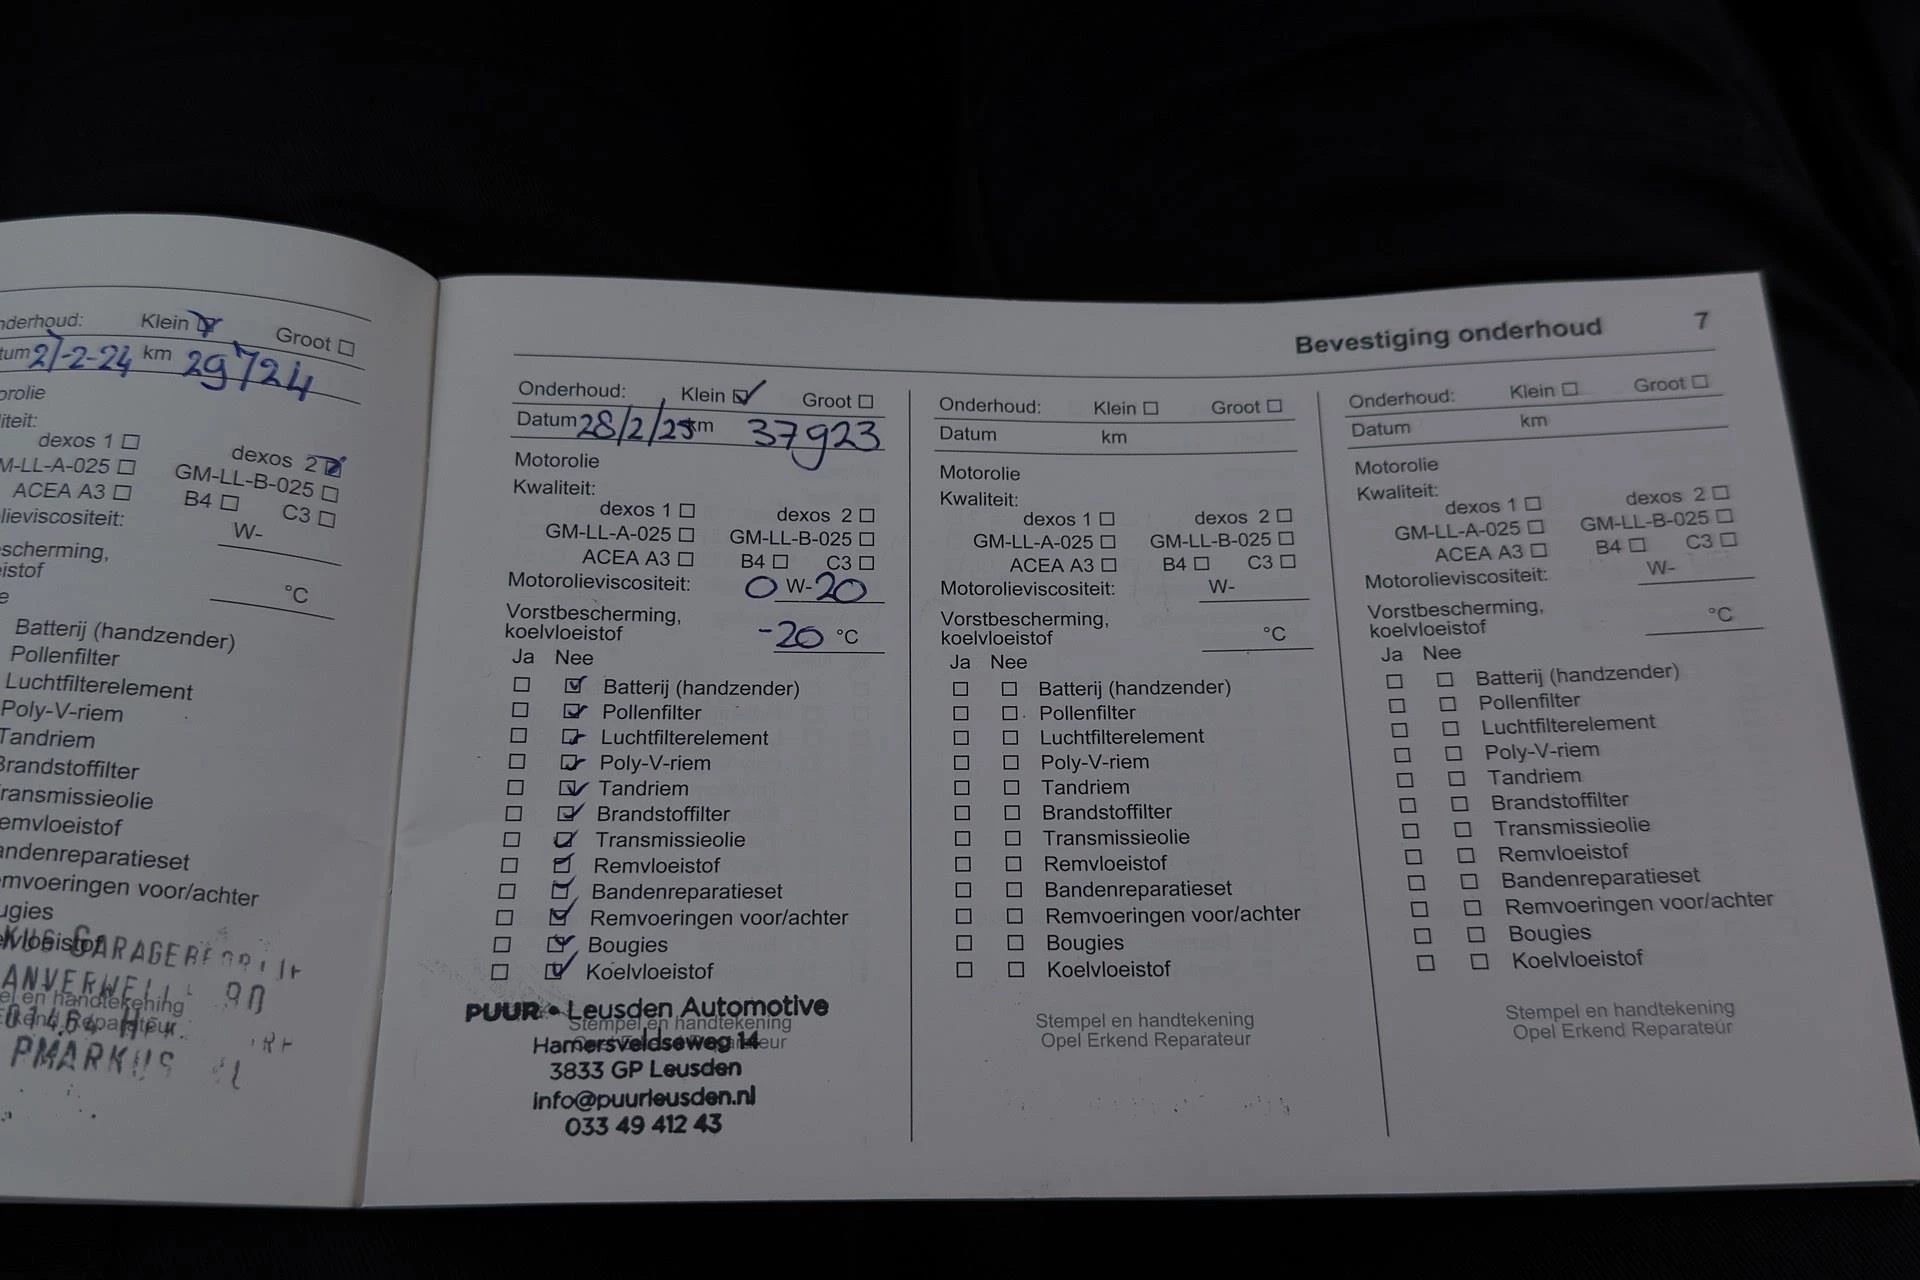 Onderhoud: Klein Groot
-2-24 km 29724
dexos 1 dexos 2
GM-LL-B-025
ACEA A3 B4 C3
W-
°C
Batterij (handzender)
Pollenfilter
Luchtfilterelement
Poly-V-riem
Tandriem
Brandstoffilter
Bevestiging onderhoud 7
Onderhoud: Klein Groot
Datum 28/2/25 km 37923
Motorolie
Kwaliteit:
dexos 1 dexos 2
GM-LL-A-025 GM-LL-B-025
ACEA A3 B4 C3
Motorolieviscositeit: 0 W-20
Vorstbescherming,
koelvloeistof -20 °C
Ja Nee
Batterij (handzender)
Pollenfilter
Luchtfilterelement
Poly-V-riem
Tandriem
Brandstoffilter
Transmissieolie
Remvloeistof
Bandenreparatieset
Remvoeringen voor/achter
Bougies
Koelvloeistof
PUUR • Leusden Automotive
Stempel en handtekening
Hamersveldseweg 14
3833 GP Leusden
info@puurleusden.nl
033 49 412 43
Onderhoud: Klein Groot
Datum km
Motorolie
Kwaliteit:
dexos 1 dexos 2
GM-LL-A-025 GM-LL-B-025
ACEA A3 B4 C3
Motorolieviscositeit: W-
Vorstbescherming,
koelvloeistof °C
Ja Nee
Batterij (handzender)
Pollenfilter
Luchtfilterelement
Poly-V-riem
Tandriem
Brandstoffilter
Transmissieolie
Remvloeistof
Bandenreparatieset
Remvoeringen voor/achter
Bougies
Koelvloeistof
Stempel en handtekening
Opel Erkend Reparateur
Onderhoud: Klein Groot
Datum km
Motorolie
Kwaliteit:
dexos 1 dexos 2
GM-LL-A-025 GM-LL-B-025
ACEA A3 B4 C3
Motorolieviscositeit: W-
Vorstbescherming,
koelvloeistof °C
Ja Nee
Batterij (handzender)
Pollenfilter
Luchtfilterelement
Poly-V-riem
Tandriem
Brandstoffilter
Transmissieolie
Remvloeistof
Bandenreparatieset
Remvoeringen voor/achter
Bougies
Koelvloeistof
Stempel en handtekening
Opel Erkend Reparateur